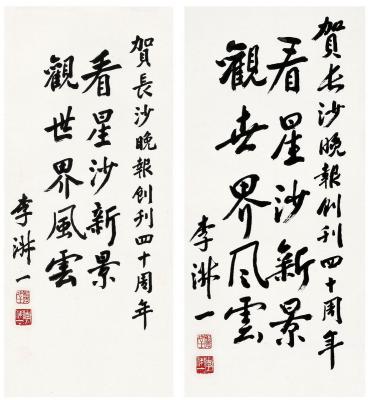 賀長沙晚報創刊四十周年
看星沙新景
觀世界風雲
李淋一
賀長沙晚報創刊四十周年
看星沙新景
觀世界风雲
李淋一